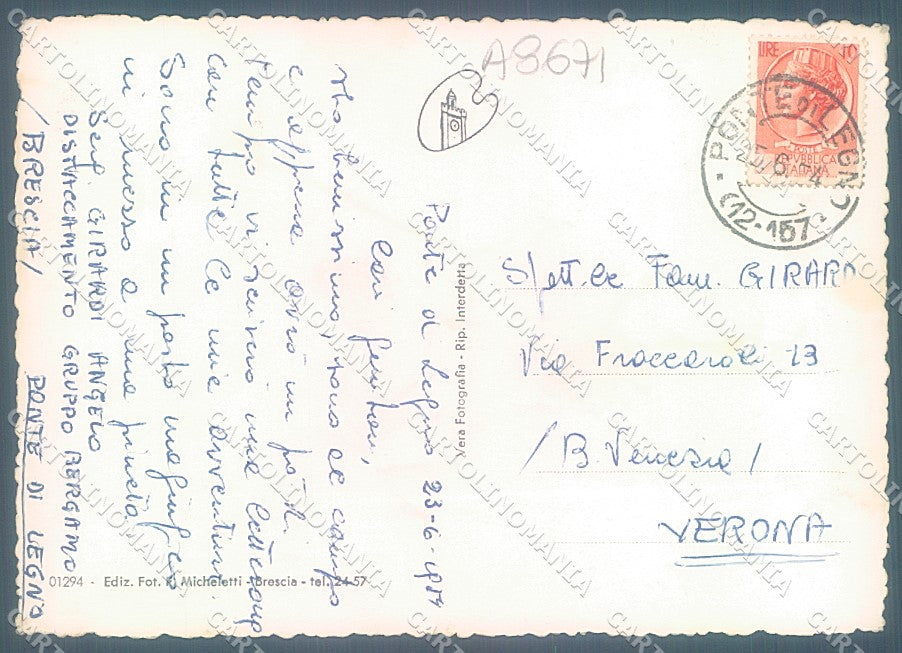 A8671
LIRE 10
POSTE
REPUBBLICA
ITALIANA
PONTE DI LEGNO
(12-157)
Ponte di Legno 23-6-1954
Cari genitori,
sto benissimo, sono al campo
e appena avrò un po' di
tempo vi scriverò una letterona
con tutte le mie avventure.
Sono in un posto magnifico
in mezzo a una pineta
Serg GIRARDI ANGELO
DISTACCAMENTO GRUPPO BERGAMO
/BRESCIA/ PONTE DI LEGNO
Vera Fotografia - Rip. Interdetta
Spett.le Fam. GIRARD
Via Fraccaroli 13
/B. Venezia/
VERONA
01294 - Ediz. Fot. F. Micheletti - Brescia - tel. 24-57
CARTOLINOMANIA